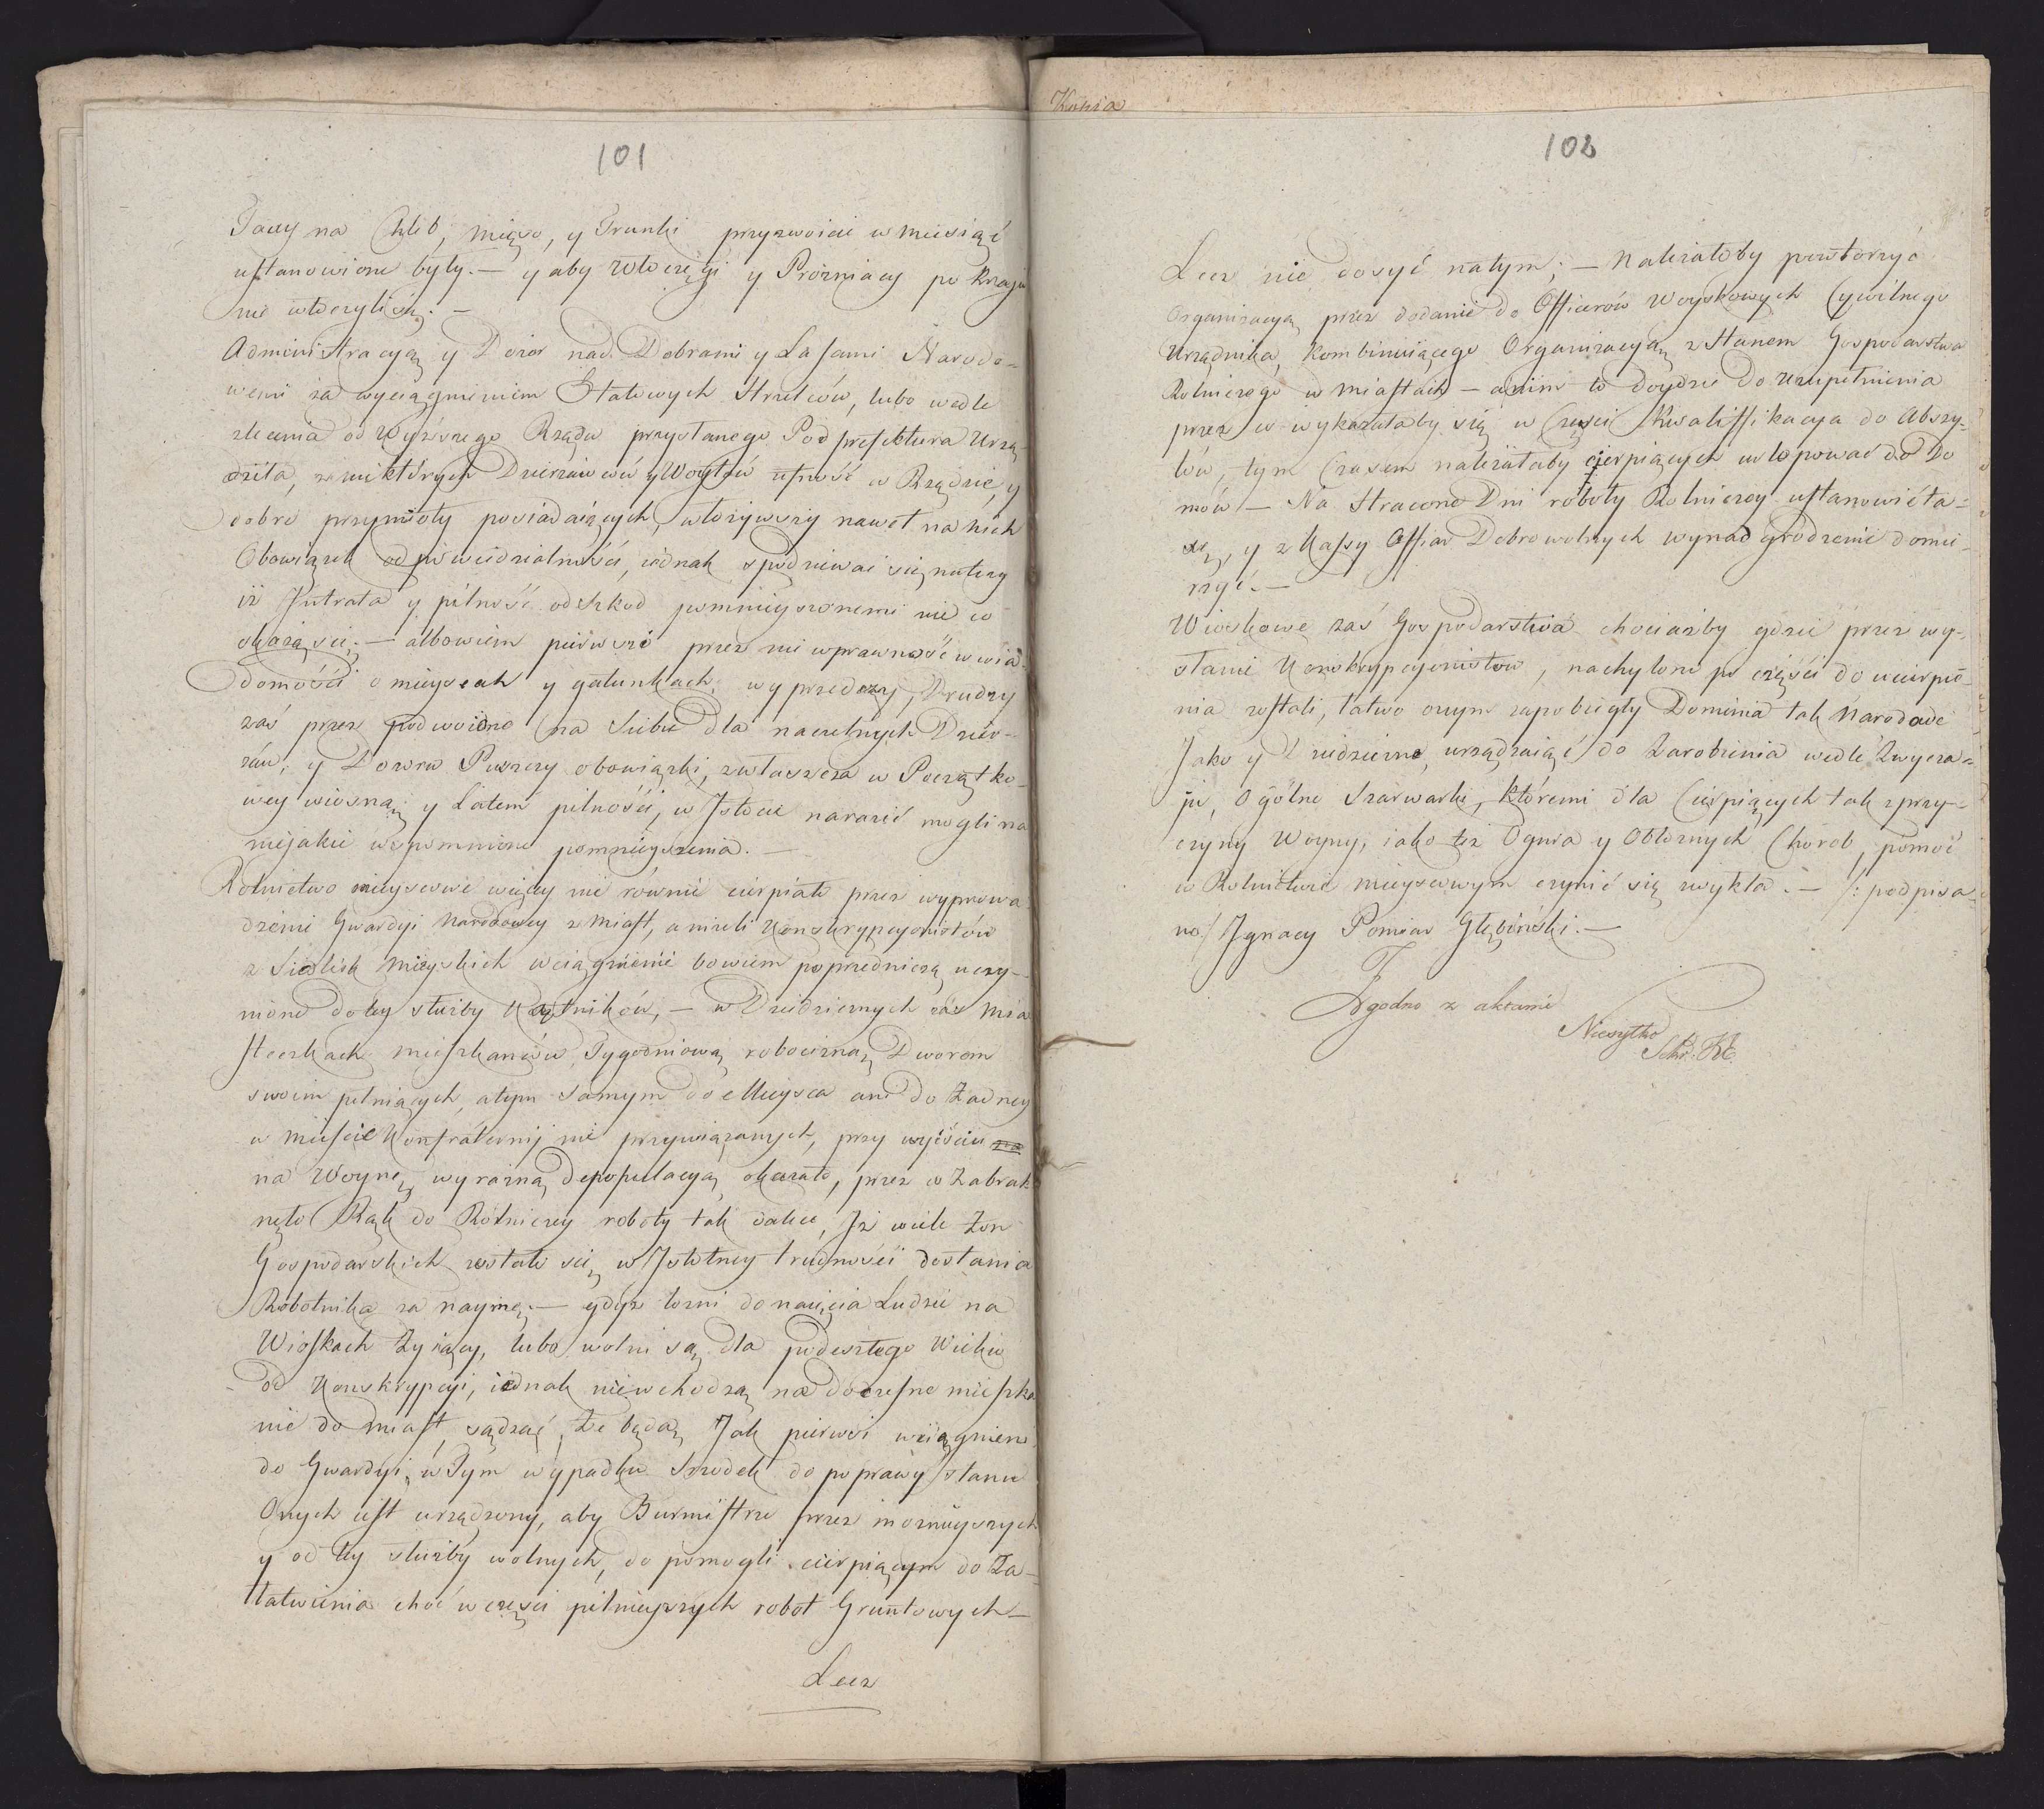 101
Taxy na Chléb, mięso, y Trunki przyzwoicie w miesiąc
ustanowione były. — y aby Włoczęgi y Prózniacy po kraju
nie włoczyli się. —
Administracyą y Dozor nad Dobrami y Lasami Narodo-
wemi za wyciągnieniem Etatowych Strzelców, lubo wedle
zlecenia od Wyższego Rządu przysłanego Podprefektura Urzą-
dziła, niektórych Dzierżawców y Woytów ufność w Rządzie, y
dobre przymioty posiadaiących, włożywszy nawet na nich
Obowiązek odpowiedzialności, iednak spodziewać się należy
iż Intrata y pilność od szkod pomnieyszonemi nie co
okażą się; — albowiem pierwsze przez nie wprawność w wia-
domości o mieyscach y gatunkach, wyprzedaży, Drudzy
zaś przez podwoione na Siebie dla naczelnych Dzier-
żaw, y Dozoru Puszczy obowiązki, zwłaszcza w Początko-
wey wiosną y Latem pilności, w Istocie narazić mogli na
niejakie wspomnione pomnieyszenia. —
Rolnictwo mieyscowe więcey nie równie cierpiało przez wyprowa-
dzenie Gwardyi Narodowey z Miast, a niżeli Konskrypcyonistów
z Siedlisk Mieyskich wciągnienie bowiem poprzedniczą uczy-
nione do tey służby Kątników, — w Dziedzicznych zaś Mia
steczkach mieszkanców, Tygodniową robociznę Dworom
swoim pełniących, a tym samym do Mieysca ani do Żadney
w Mieście Konfraternij nie przywiązanych, przy wyiściu
na Woynę, wyrazną depopulacyą okazało, przez co Zabrak
nęło Rąk do Rolniczey roboty tak dalece, Iż wiele Żon
Gospodarskich zostało się w Istotney trudności dostania
Robotnika za naymę. — gdyż lozni do naięcia Ludzie na
Wioskach Żyiący, lubo wolni są dla podeszłego Wieku
od Konskrypcyi, iednak nie wchodzą na doczesne mieszka
nie do miast sądząc, Że będą Jak pierwsi wciągnieni
do Gwardyi, w Tym wypadku Srzodek do poprawy stanu
Onych iest urządzony, aby Burmistrze przez możnieyszych
y od tey służby wolnych, do pomogli cierpiącym do Za-
łatwienia choć w części pilnieyszych robot Gruntowych —
Lecz
Kopia
102
Lecz nie dosyć na tym; — Należałoby powtorzyć
Organizacyą przez dodanie do Officerów Woyskowych Cywilnego
Urzędnika, kombinuiącego Organizacyą z Stanem Gospodarstwa
Rolniczego w Miastach — a nim to doydzie do uzupełnienia
przez co wykazałaby się w Części Kwaliffikacya do Abszy-
tów, tym Czasem należałaby cierpiących urlopować do Do
mów — Na Stracone Dni roboty Rolniczey ustanowić ta-
xę, y z Kassy Offiar Dobrowolnych wynadgrodzenie domie-
rzyć. —
Wioskowe zaś Gospodarstwa chociażby gdzie przez wy-
słanie Konskrypcyonistow, nachylone po części do ucierpie-
nia zostali, łatwo onym zapobiegły Dominia tak Narodowe
Jako y Dziedziczne, urządzaiąc do Zarobienia wedle Zwycza-
ju, Ogólne Szarwarki, któremi dla Cierpiących tak z przy-
czyny Woyny, iako też Ognia y Obłożnych Chorob, pomoc
w Rolnictwie mieyscowym czynić się zwykła. — /: podpisa-
no :/ Ignacy Pomian Głębiński. —
Zgodno z aktami
Niesytko
Sekr.